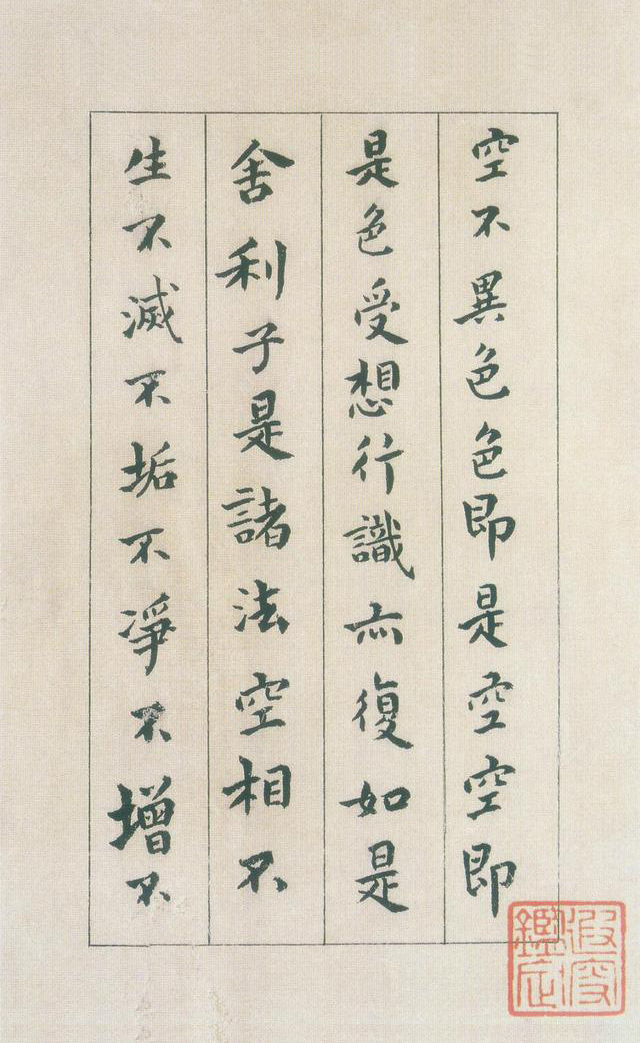 空不異色色即是空空即
是色受想行識亦復如是
舍利子是諸法空相不
生不滅不垢不淨不增不
鑑定